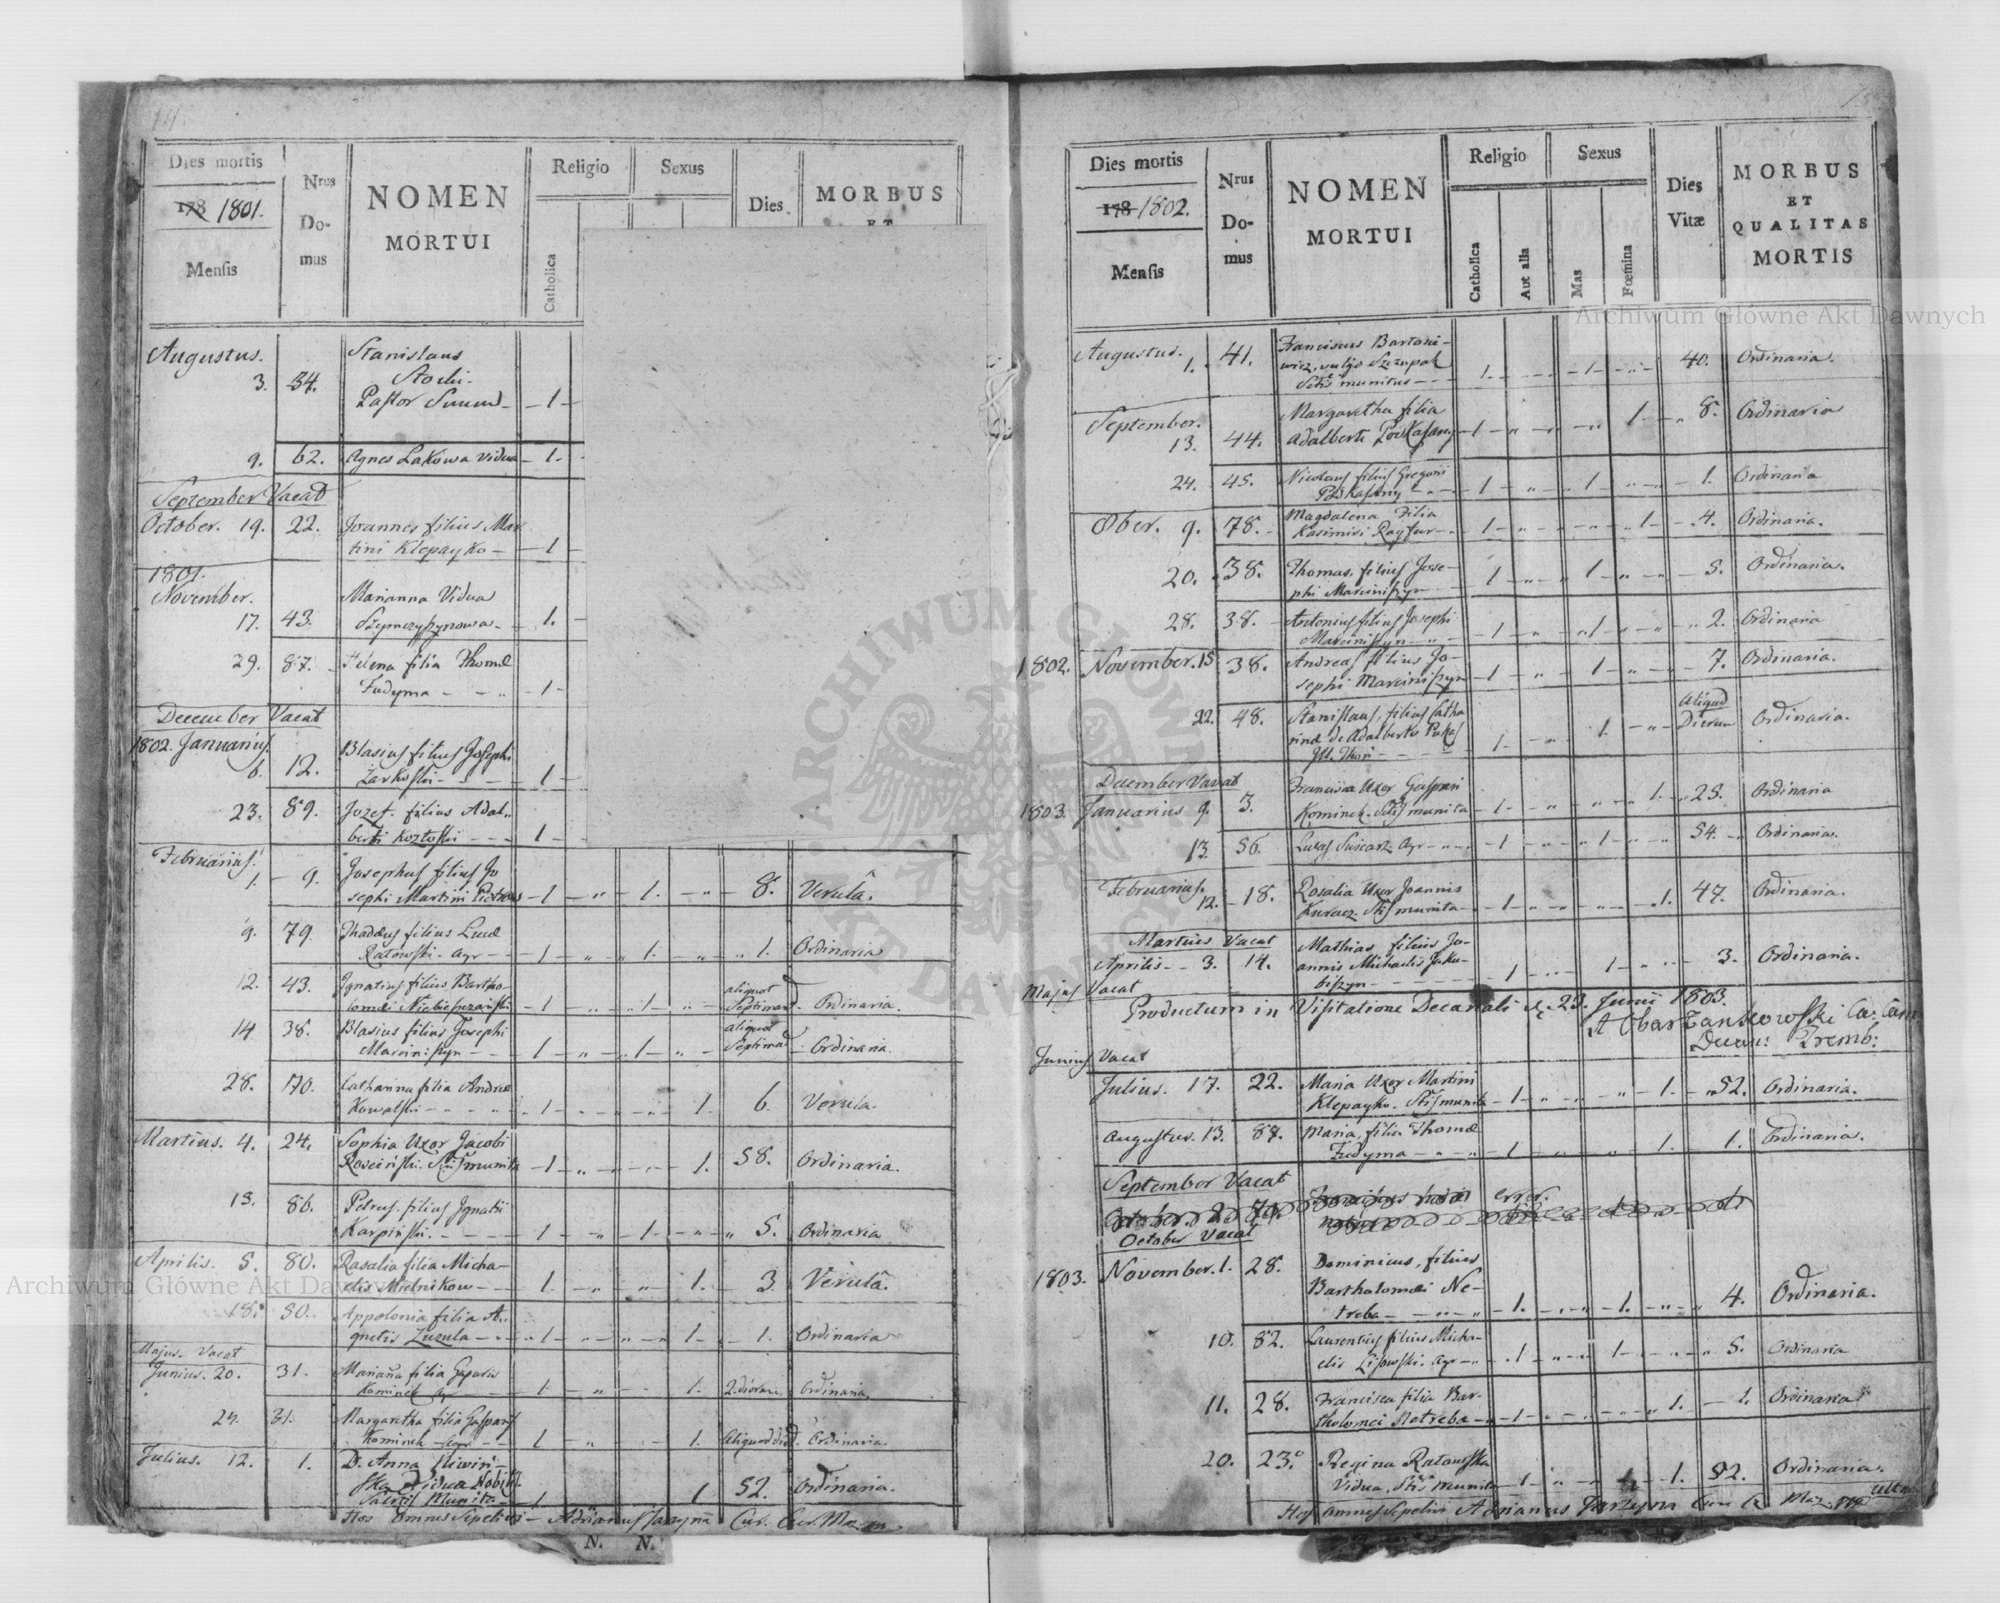 14.
Dies mortis
178 1801.
Mensis
Nrus
Do-
mus
NOMEN
MORTUI
Religio
Catholica
Sexus
Dies
MORBUS
ET
Augustus.
3. 34. Stanislaus
Pastor
9. 62. Agnes Lakowa Vidua - 1.
September Vacat
October. 19. 22. Joannes filius Mar
tini Klepayko - 1
1801.
November.
17. 43. Marianna Vidua
- 1.
29. 87. Helena filia Thomæ
Fudyma - 1
December Vacat
1802. Januarius.
6. 12. Blasius filius Josephi
- 1
23. 89. Jozef. filius Adal-
berti Kozłoski - 1
Februarius.
1. 9. Josephus filius Jo
sephi Martini - 1 - 1. 8. Verulâ.
9. 79. Thadeus filius Lucæ
Ratowski. agr - 1 - 1. 1. Ordinaria
12. 43. Ignatius filius Bartho-
lomei - 1 - 1 aliquot Septiman Ordinaria.
14 38. Blasius filius Josephi
Marciniszyn - 1 - 1 - aliquot Septimad Ordinaria.
28. 70. Catharina filia Andreæ
Kowalski - 1 - 1. 6. Verula.
Martius. 4. 24. Sophia Uxor Jacobi
munita - 1 - 1. 58. Ordinaria.
13. 86. Petrus filius Ignatii
Karpiński. - 1 - 1. 5. Ordinaria
Aprilis. 5. 80. Rosalia filia Micha-
elis Mielnikow - 1. - 1. 3. Verulâ.
18. 50. Appolonia filia A.
gnetis Zuzula - 1. - 1. 1. Ordinaria
Majus. Vacat
Junius. 20. 31. Marianna filia Gasparis
Kominek agr - 1. - 1. 2. dierum Ordinaria.
24. 31. Margaretha filia Gaspari
Kominek agr - 1 - 1. Aliquod died. Ordinaria.
Julius. 12. 1. D. Anna
ska Vidua Nobilis
Sacris Munita - 1 1 52. Ordinaria.
Hos omnes Sepelivi - Adrianus Jarzyna Cur.
N. N.
15
Dies mortis
178 1802.
Mensis
Nrus
Do-
mus
NOMEN
MORTUI
Religio
Catholica
Aut alia
Sexus
Mas
Fœmina
Dies
Vitæ
MORBUS
ET
QUALITAS
MORTIS
Augustus.
1. 41. Franciscus Bartoni-
wicz, vulgo Szczupak
munitus - 1. - 1 - 40. Ordinaria.
September.
13. 44. Margaretha filia
Adalberti - 1 - 1 - 8. Ordinaria
24. 45. Nicolaus filius Gregorii
- 1 - 1 - 1. Ordinaria
Ober. 9. 78. Magdalena Filia
Kasimiri - 1 - 1 - 4. Ordinaria.
20. 38. Thomas. filius Jose-
phi Marciniszyn - 1 - 1 - 5. Ordinaria.
28. 38. Antonius filius Josephi
Marciniszyn - 1 - 1 - 2. Ordinaria
1802. November. 15 38. Andreas filius Jo-
sephi Marciniszyn - 1 - 1 - 7. Ordinaria.
22. 48. Stanislaus, filius Catha
rinæ de Adalberto
1. - 1. Aliquod Dierum Ordinaria.
December Vacat
1803. Januarius 9. 3. Francisca Uxor Gaspari
Kominek. munita - 1 - 1. 25. Ordinaria
13. 56. Lucas agr - 1 - 1 - 54. Ordinaria.
Februarius.
12. 18. Rosalia Uxor Joannis
munita - 1 - 1. 47. Ordinaria.
Martius Vacat
Aprilis - 3. 14. Mathias filius Jo-
annis Michaelis Jaku-
biszyn - 1 - 1 - 3. Ordinaria.
Majus Vacat
Productum in Visitatione Decanali d. 23. Junii 1803.
Tremb:
Junius Vacat
Julius. 17. 22. Maria Uxor Martini
Klepayko. munita - 1 - 1. 52. Ordinaria.
Augustus. 13. 87. Maria, filia Thomæ
Fudyma - 1 - 1. 1. Ordinaria.
September Vacat
error.
October Vacat
1803. November. 1. 28. Dominicus, filius
Bartholomei Ne-
treba - 1. - 1. 4. Ordinaria.
10. 82. Laurentius filius Micha-
elis Lisowski. agr - 1 - 1 - 5. Ordinaria
11. 28. Francisca filia Bar-
tholomei Netreba - 1 - 1. 1. Ordinaria
20. 23. Regina Ratowska
Vidua, munita - 1 - 1. 82. Ordinaria.
Hos omnes Sepelivi Adrianus Jarzyna
Archiwum Główne Akt Dawnych
Archiwum Główne Akt Dawnych
ARCHIWUM GŁÓWNE AKT DAWNYCH